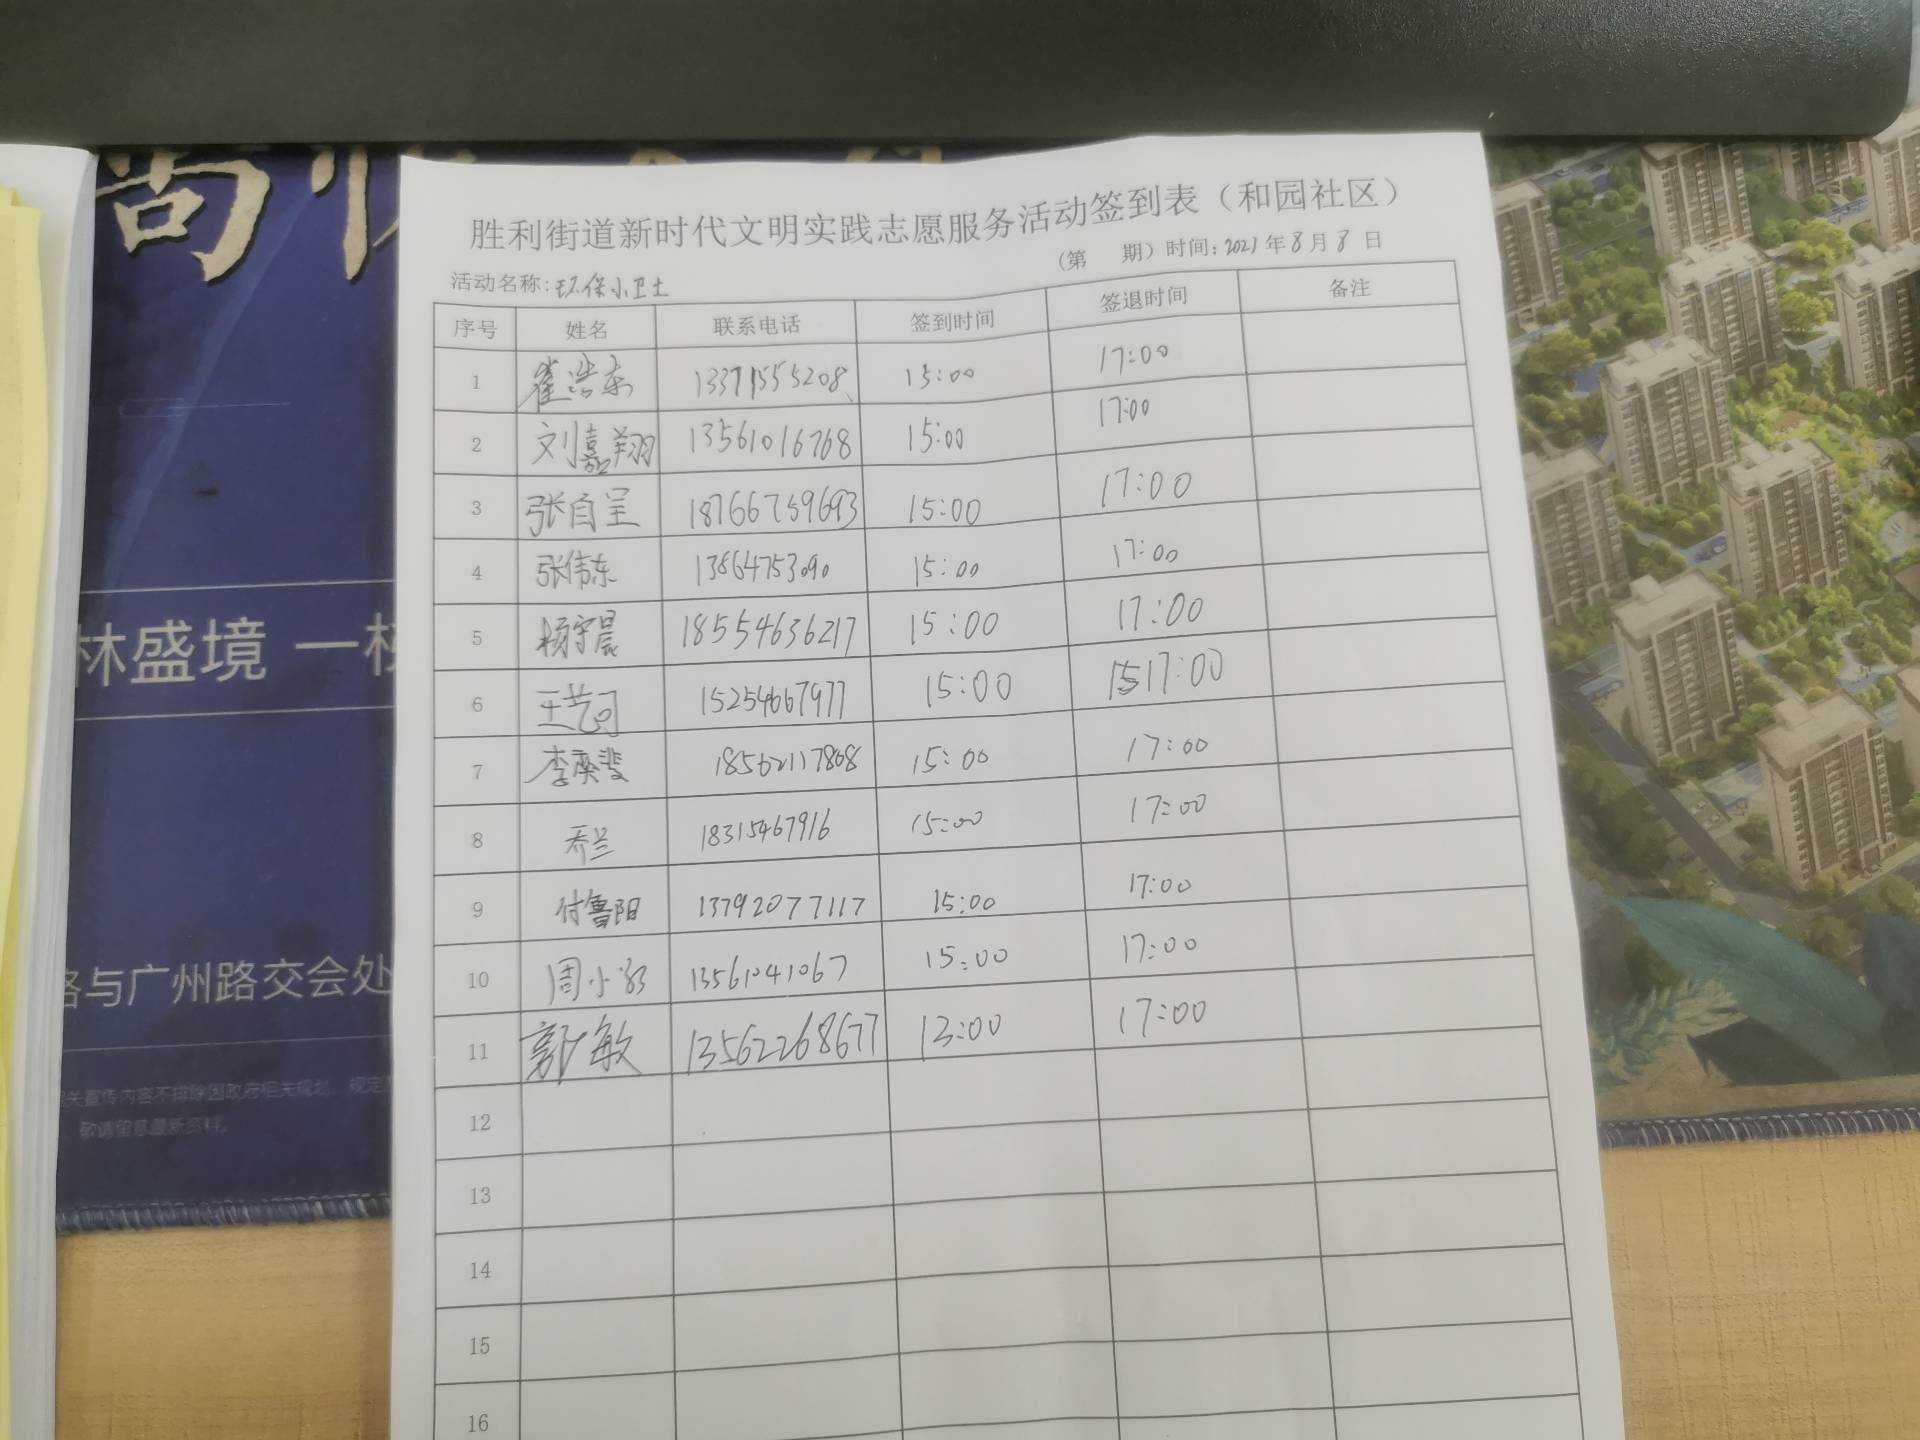 尚
胜利街道新时代文明实践志愿服务活动签到表（和园社区）
（第 期）时间：2021年8月8日
活动名称：环保小卫士
序号 姓名 联系电话 签到时间 签退时间 备注
1 崔浩东 13371555208 15:00 17:00
2 刘嘉翔 13561016768 15:00 17:00
3 张自呈 18766759693 15:00 17:00
4 张伟东 13864753090 15:00 17:00
5 杨宇晨 18554636217 15:00 17:00
6 王艺诃 15254667977 15:00 17:00
7 李奕斐 18562117868 15:00 17:00
8 乔兰 18315467916 15:00 17:00
9 付鲁阳 13792077117 15:00 17:00
10 周小 13561041067 15:00 17:00
11 郭敏 13562268677 13:00 17:00
12
13
14
15
16
林盛境 一
路与广州路交会处
关宣传内容不排除因政府相关规划、规定
敬请留意最新资料。